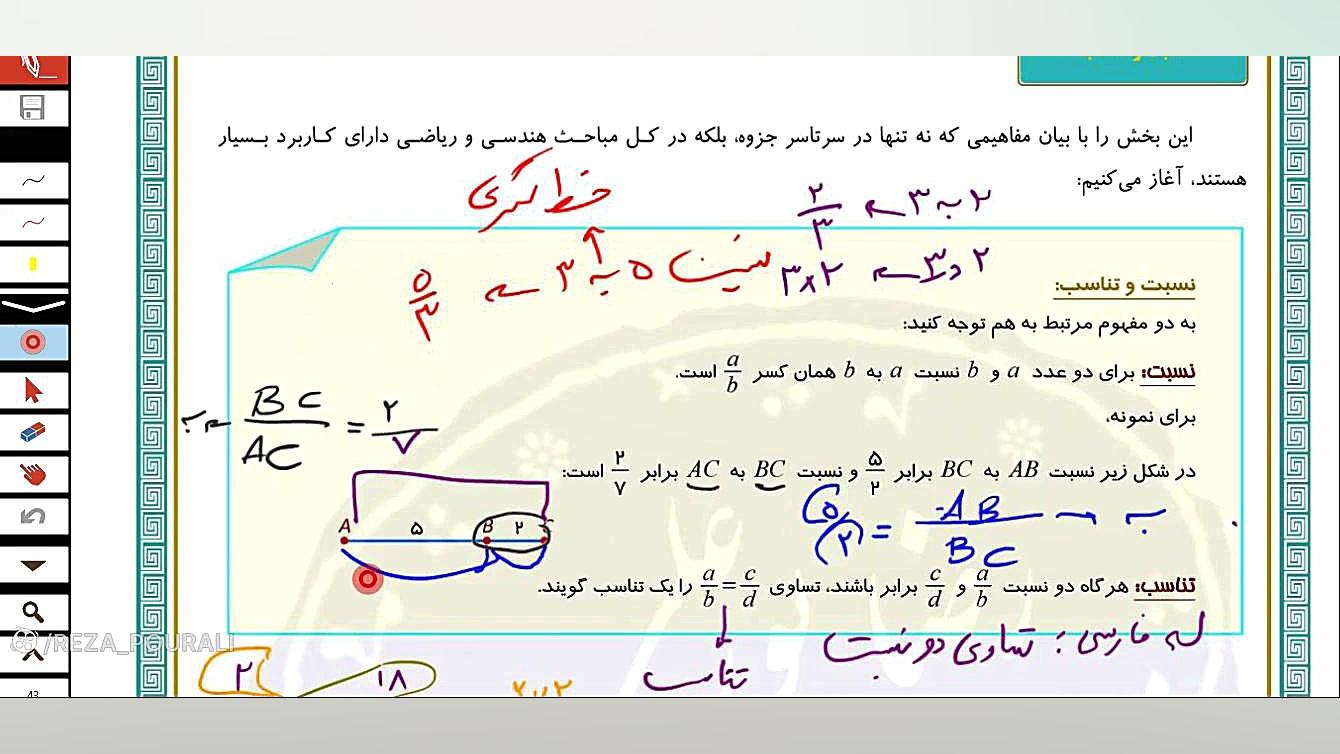 این بخش را با بیان مفاهیمی که نه تنها در سرتاسر جزوه، بلکه در کـل مباحـث هندسـی و ریاضـی دارای کـاربرد بـسیار
هستند، آغاز می‌کنیم:
۲ به ۳ ← ۲/۳
خط کسری
۲ در ۳ ← ۳×۲
نسبت ۵ به ۳ ← ۵/۳
نسبت و تناسب:
به دو مفهوم مرتبط به هم توجه کنید:
نسبت: برای دو عدد a و b نسبت a به b همان کسر a/b است.
برای نمونه،
BC/AC = ۲/۷
در شکل زیر نسبت AB به BC برابر ۵/۲ و نسبت BC به AC برابر ۲/۷ است:
AB/BC = ۵/۲
A ۵ B ۲ C
تناسب: هرگاه دو نسبت a/b و c/d برابر باشند، تساوی a/b = c/d را یک تناسب گویند.
فارسی: تساوی دو نسبت
تناسب
/REZA_POURALI
۲ ۱۸
43